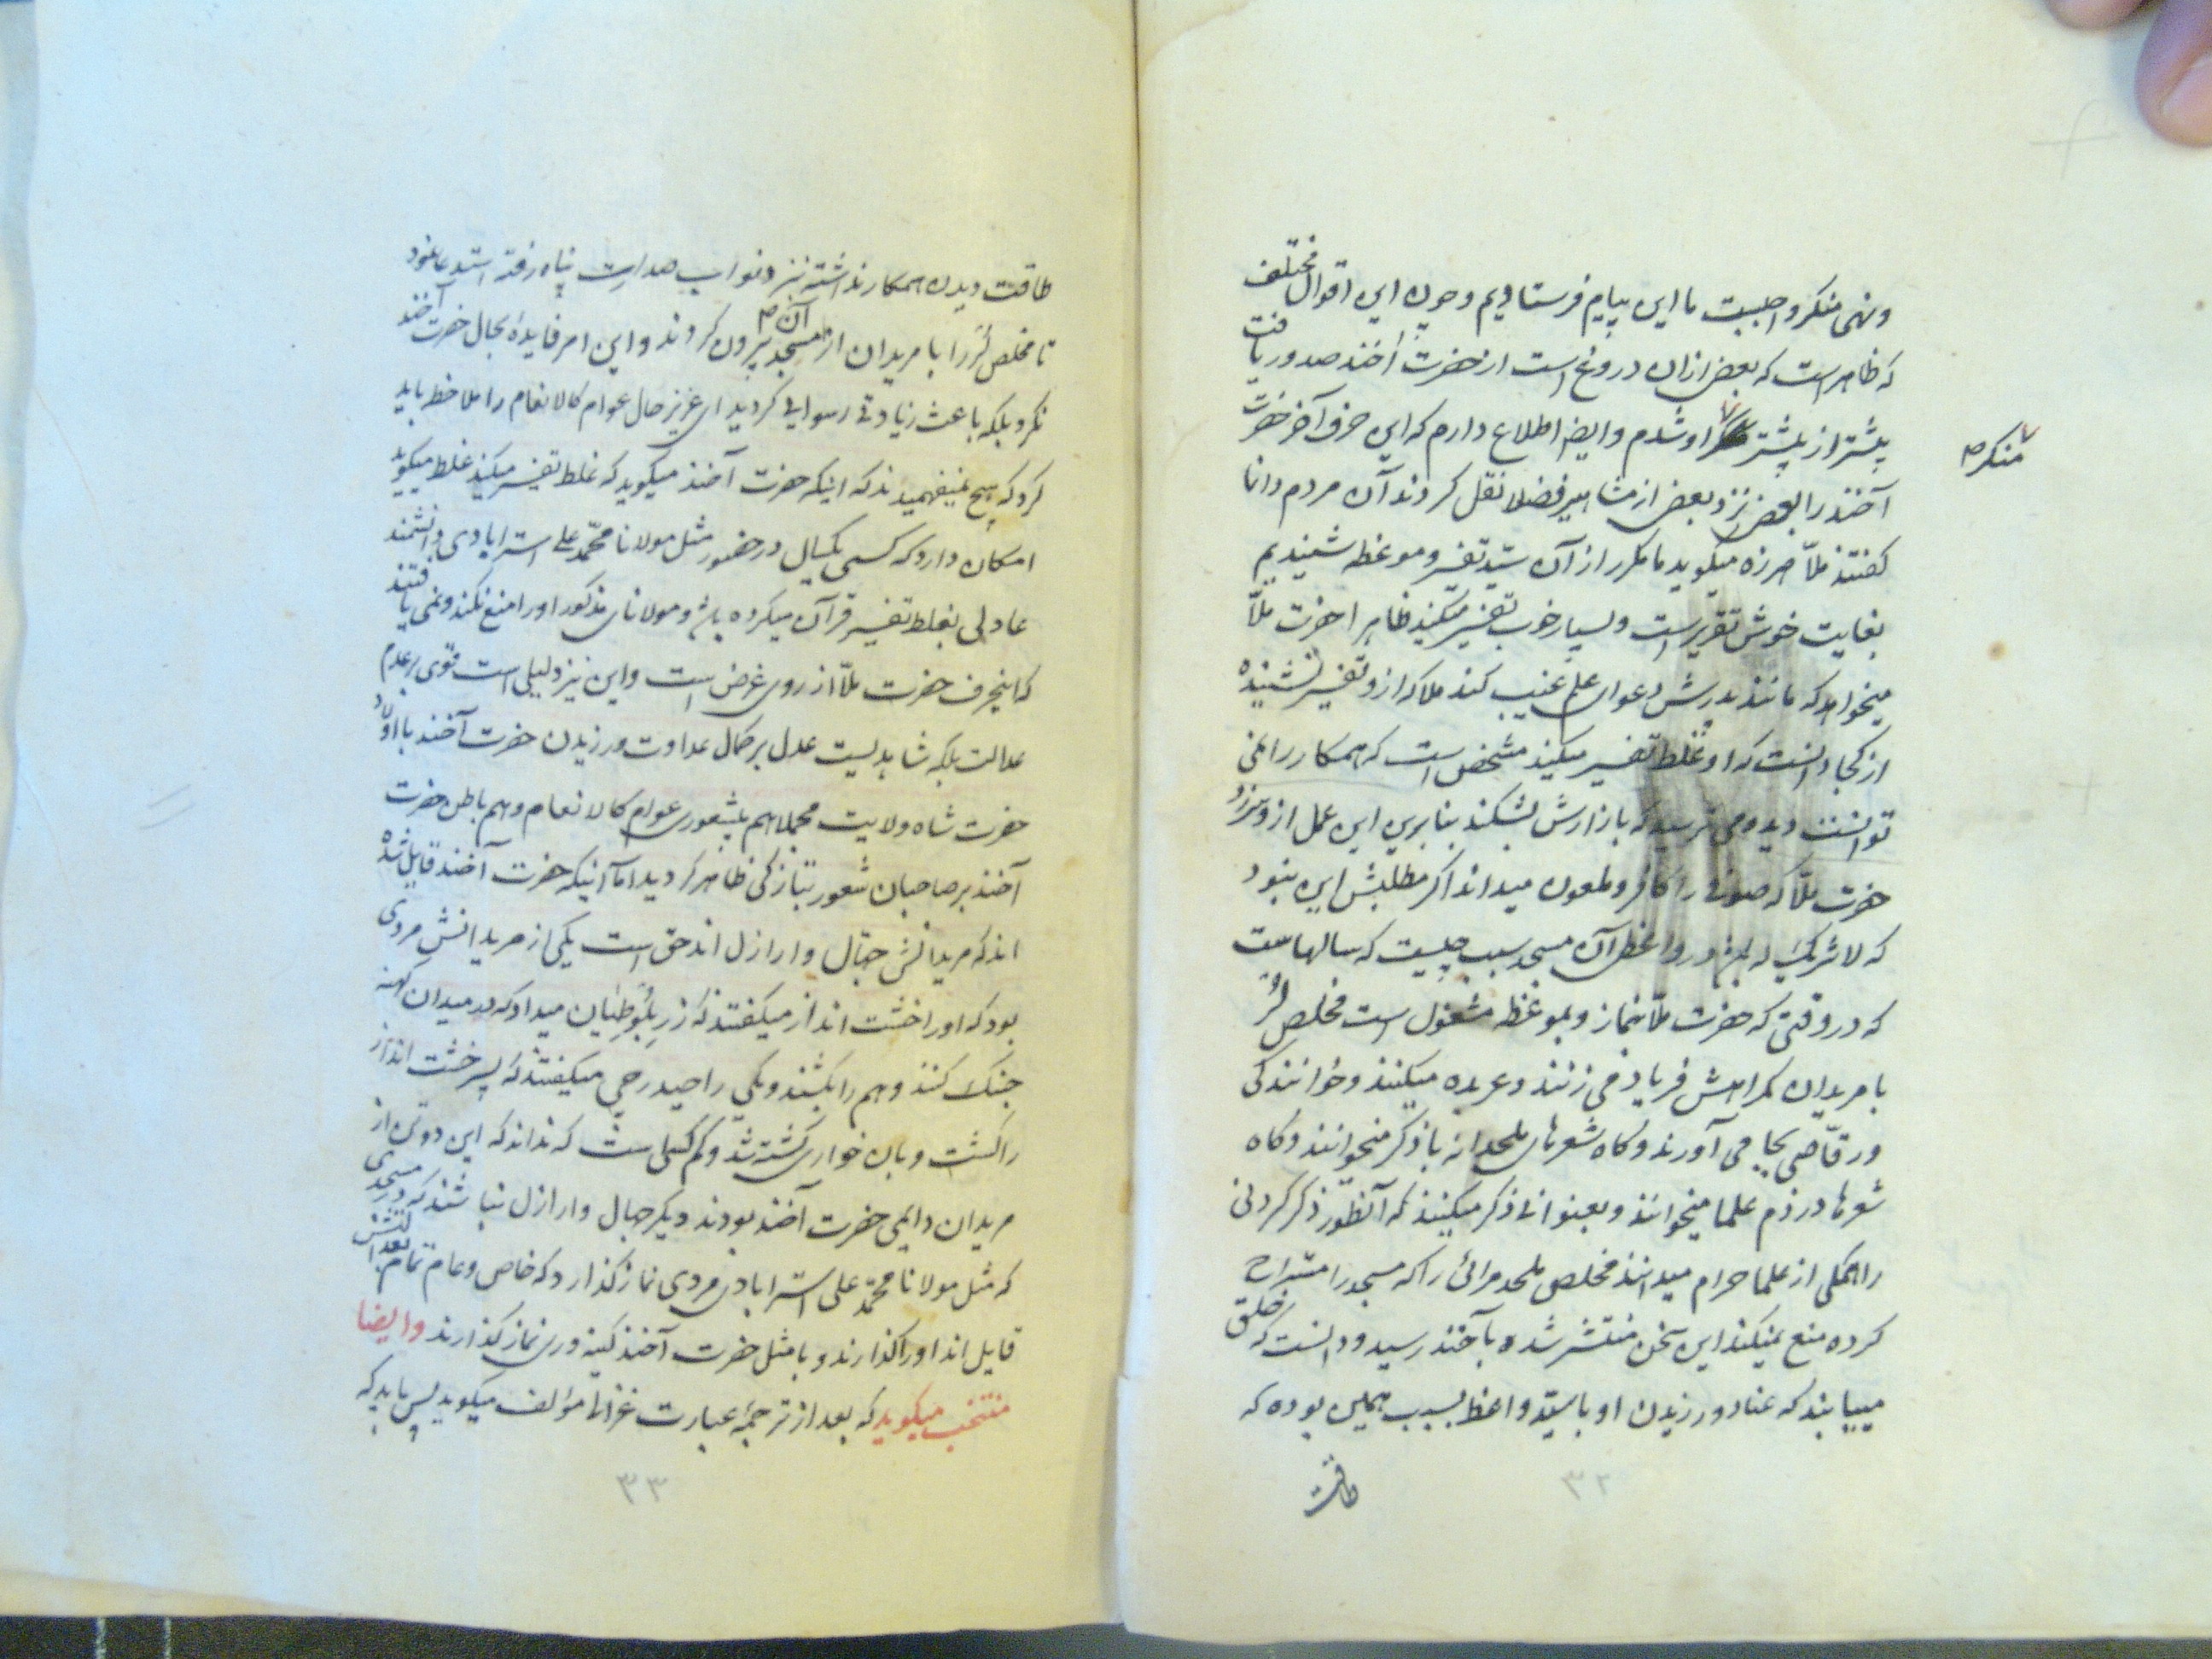 ونهی منکر واجبست ما این پیام فرستادیم و چون این اقوال مختلف
که ظاهر است که بعض ازان دروغ است از حضرت آخند صدور یافت
پیشتر از پیشتر منکر او شدم و ایضا اطلاع دارم که این حرف آخر حضرت
منکر صح
آخند را بعضی نزد بعض از مشاهیر فضلا نقل کردند آن مردم دانا
کفتند ملّا هرزه میکوید ما مکرر از آن سیّد تفسیر و موعظه شنیدیم
بغایت خوش تقریر است و بسیار خوب تفسیر میکند ظاهرا حضرت ملّا
میخواهد که مانند پدرش دعوای علم غیب کند ملا که ازو تفسیر نشنیده
از کجا دانست که او غلط تفسیر میکند مشخص است که همکار را نمی
توانست دید و می ترسید که بازارش بشکند بنابرین این عمل ازو سرزد
حضرت ملّا که صوفی را کافر و ملعون میداند اکر مطلبش این نبود
که لا شریک له باشد در واعظی آن مسجد سبب چیست که سالهاست
که در وقتی که حضرت ملّا بنماز و بموعظه مشغول است مخلص لُر
با مریدان کمراهش فریاد می زنند و عربده میکنند و خوانندکی
ورقّاصی بجا می آورند و کاه شعرهای ملحدانه با ذکر میخوانند و کاه
شعرها در ذم علما میخوانند و بعنوانی ذکر میکنند که آنطور ذکر کردنی
را همکی از علما حرام میدانند مخلص ملحد مرائی را که مسجد را مستراح
کرده منع نمیکند این سخن منتشر شده بآخند رسید و دانست که خلق
مییابند که عناد ورزیدن او با سیّد واعظ بسبب همین بوده که
طاقت
۳۲
طاقت دیدن همکار نداشته نزد نواب صدارت پناه رفته استدعا نمود
تا مخلص لُر را با مریدان از آن مسجد بیرون کردند و این امر فایدهٔ بحال حضرت آخند
نکرد بلکه باعث زیادتی رسوایی کردید ای عزیز حال عوام کالانعام را ملاحظه باید
کرد که هیچ نمیفهمیدند که اینکه حضرت آخند میکوید که غلط تفسیر میکند غلط میکوید
امکان دارد که کسی یکسال در حضور مثل مولانا محمّد علی استرابادی دانشمند
عادلی بغلط تفسیر قرآن میکرده باشد و مولانای مذکور او را منع نکند و نمی یافتند
که اینحرف حضرت ملّا از روی غرض است و این نیز دلیلی است قوی بر عدم
عدالت بلکه شاهدیست عدل بر کمال عداوت ورزیدن حضرت آخند با اولاد
حضرت شاه ولایت مجملا هم بیشعوری عوام کالانعام و هم باطن حضرت
آخند بر صاحبان شعور بتازکی ظاهر کردید اما آنکه حضرت آخند قایل شده
اند که مریدانش جهّال و اراذل اند حق است یکی از مریدانش مردی
بود که او را خشت انداز میکفتند که زر بلوطیان میداد که در میدان کهنه
جنک کنند و هم را بکشند و یکی را حیدر ... میکفتند که پسر خشت انداز
را کشت و بان خواری کشته شد و کم کسی است که نداند که این دو تن از
مریدان دایمی حضرت آخند بودند دیکر جهال و اراذل نباشند که در مسجدی
که مثل مولانا محمّد علی استرابادی مردی نماز کذارد که خاص و عام تمام بعدالتش
قایل اند او را کذارند و با مثل حضرت آخند کینه وری نماز کذارند وایضا
منتخب میکوید که بعد از ترجمهٔ عبارت غزالی مؤلف میکوید پس باید که
۳۳